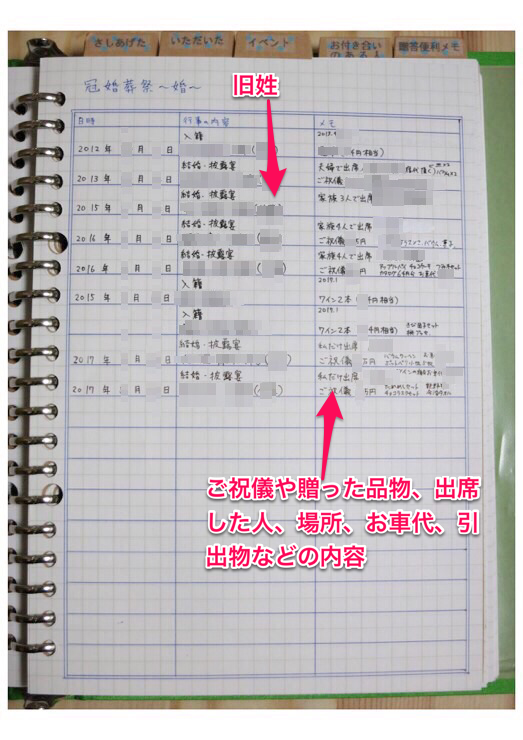 さしあげた
いただいた
イベント
お付き合い
のある人
贈答便利メモ
冠婚葬祭〜婚〜
旧姓
日時
行事の内容
メモ
入籍
2012年 月 日
千円相当)
結婚・披露宴
夫婦で出席
2013年 月 日
ご祝儀
結婚・披露宴
家族3人で出席
2015年 月 日
結婚・披露宴
家族4人で出席
2016年 月 日
ご祝儀 万円
結婚・披露宴
家族4人で出席
2016年 月 日
ご祝儀 円
入籍
2017.1
2015年 月 日
ワイン2本( 千円相当)
入籍
2017.1
ワイン2本( 千円相当)
結婚・披露宴
私だけ出席
2017年 月 日
ご祝儀 万円
結婚・披露宴
私だけ出席
2017年 月 日
ご祝儀 万円
ご祝儀や贈った品物、出席
した人、場所、お車代、引
出物などの内容